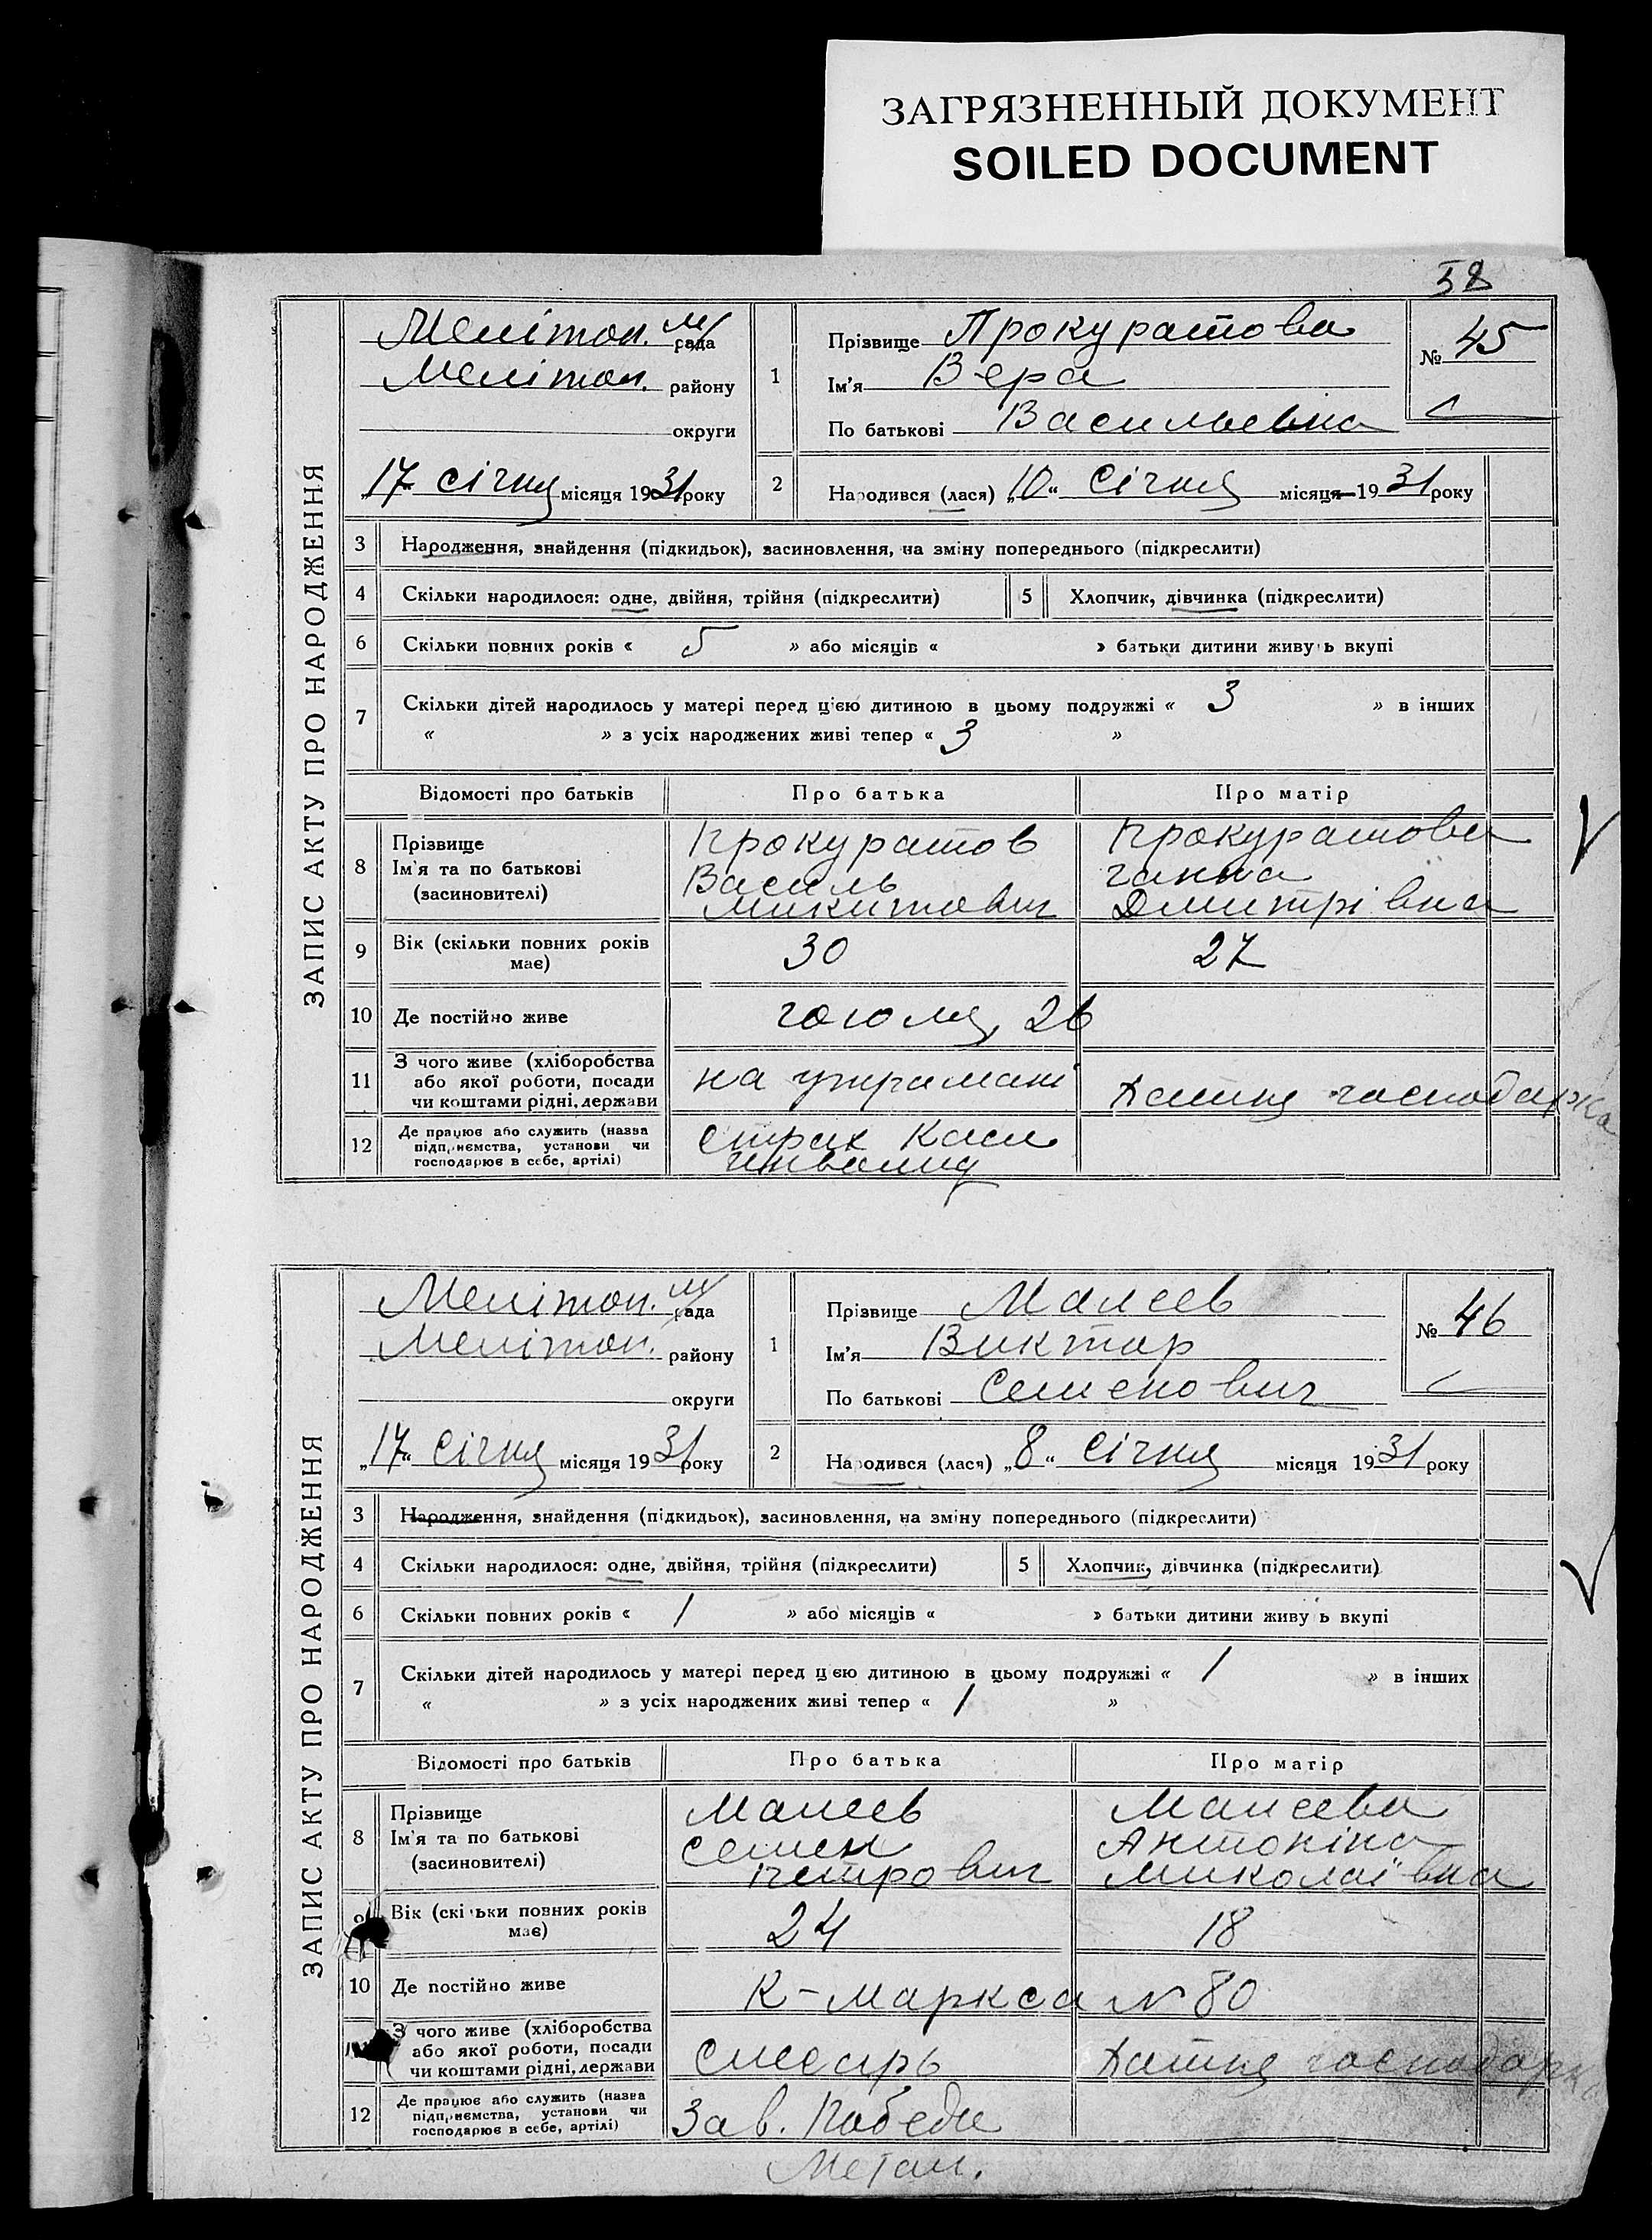 ЗАГРЯЗНЕННЫЙ ДОКУМЕНТ
SOILED DOCUMENT
58
ЗАПИС АКТУ ПРО НАРОДЖЕННЯ
Мелітоп. м/рада
Меліт​оп. району
округи
„17“ січня місяця 1931 року
1
Прізвище Прокуратова
Ім'я Вера
По батькові Васильевна
№ 45
2 Народився (лася) „10“ Січня місяця 1931 року
3 Народження, знайдення (підкидьок), засиновлення, на зміну попереднього (підкреслити)
4 Скільки народилося: одне, двійня, трійня (підкреслити) 5 Хлопчик, дівчинка (підкреслити)
6 Скільки повних років « 5 » або місяців « » батьки дитини живуть вкупі
7 Скільки дітей народилось у матері перед цією дитиною в цьому подружжі « 3 » в інших
« » з усіх народжених живі тепер « 3 »
Відомості про батьків Про батька Про матір
8 Прізвище Прокуратов Прокуратова
Ім'я та по батькові Василь Ганна
(засиновителі) Микитович Дмитрівна
9 Вік (скільки повних років має) 30 27
10 Де постійно живе Гоголя, 26
11 З чого живе (хліборобства
або якої роботи, посади
чи коштами рідні, держави
на утримані Хатня господарка
12 Де працює або служить (назва
підприємства, установи чи
господарює в себе, артілі)
Страх Каса
инвалид
ЗАПИС АКТУ ПРО НАРОДЖЕННЯ
Меліт​оп. м/рада
Меліт​оп. району
округи
„17“ січня місяця 1931 року
1
Прізвище Малеев
Ім'я Виктор
По батькові Семенович
№ 46
2 Народився (лася) „8“ Січня місяця 1931 року
3 Народження, знайдення (підкидьок), засиновлення, на зміну попереднього (підкреслити)
4 Скільки народилося: одне, двійня, трійня (підкреслити) 5 Хлопчик, дівчинка (підкреслити)
6 Скільки повних років « 1 » або місяців « » батьки дитини живуть вкупі
7 Скільки дітей народилось у матері перед цією дитиною в цьому подружжі « 1 » в інших
« » з усіх народжених живі тепер « 1 »
Відомості про батьків Про батька Про матір
8 Прізвище Малеев Малеева
Ім'я та по батькові Семен Антоніна
(засиновителі) Петрович Миколаївна
9 Вік (скільки повних років має) 24 18
10 Де постійно живе К-Маркса № 80
З чого живе (хліборобства
або якої роботи, посади
чи коштами рідні, держави
слесарь Хатня господарка
12 Де працює або служить (назва
підприємства, установи чи
господарює в себе, артілі)
Зав. Победа
Метал.